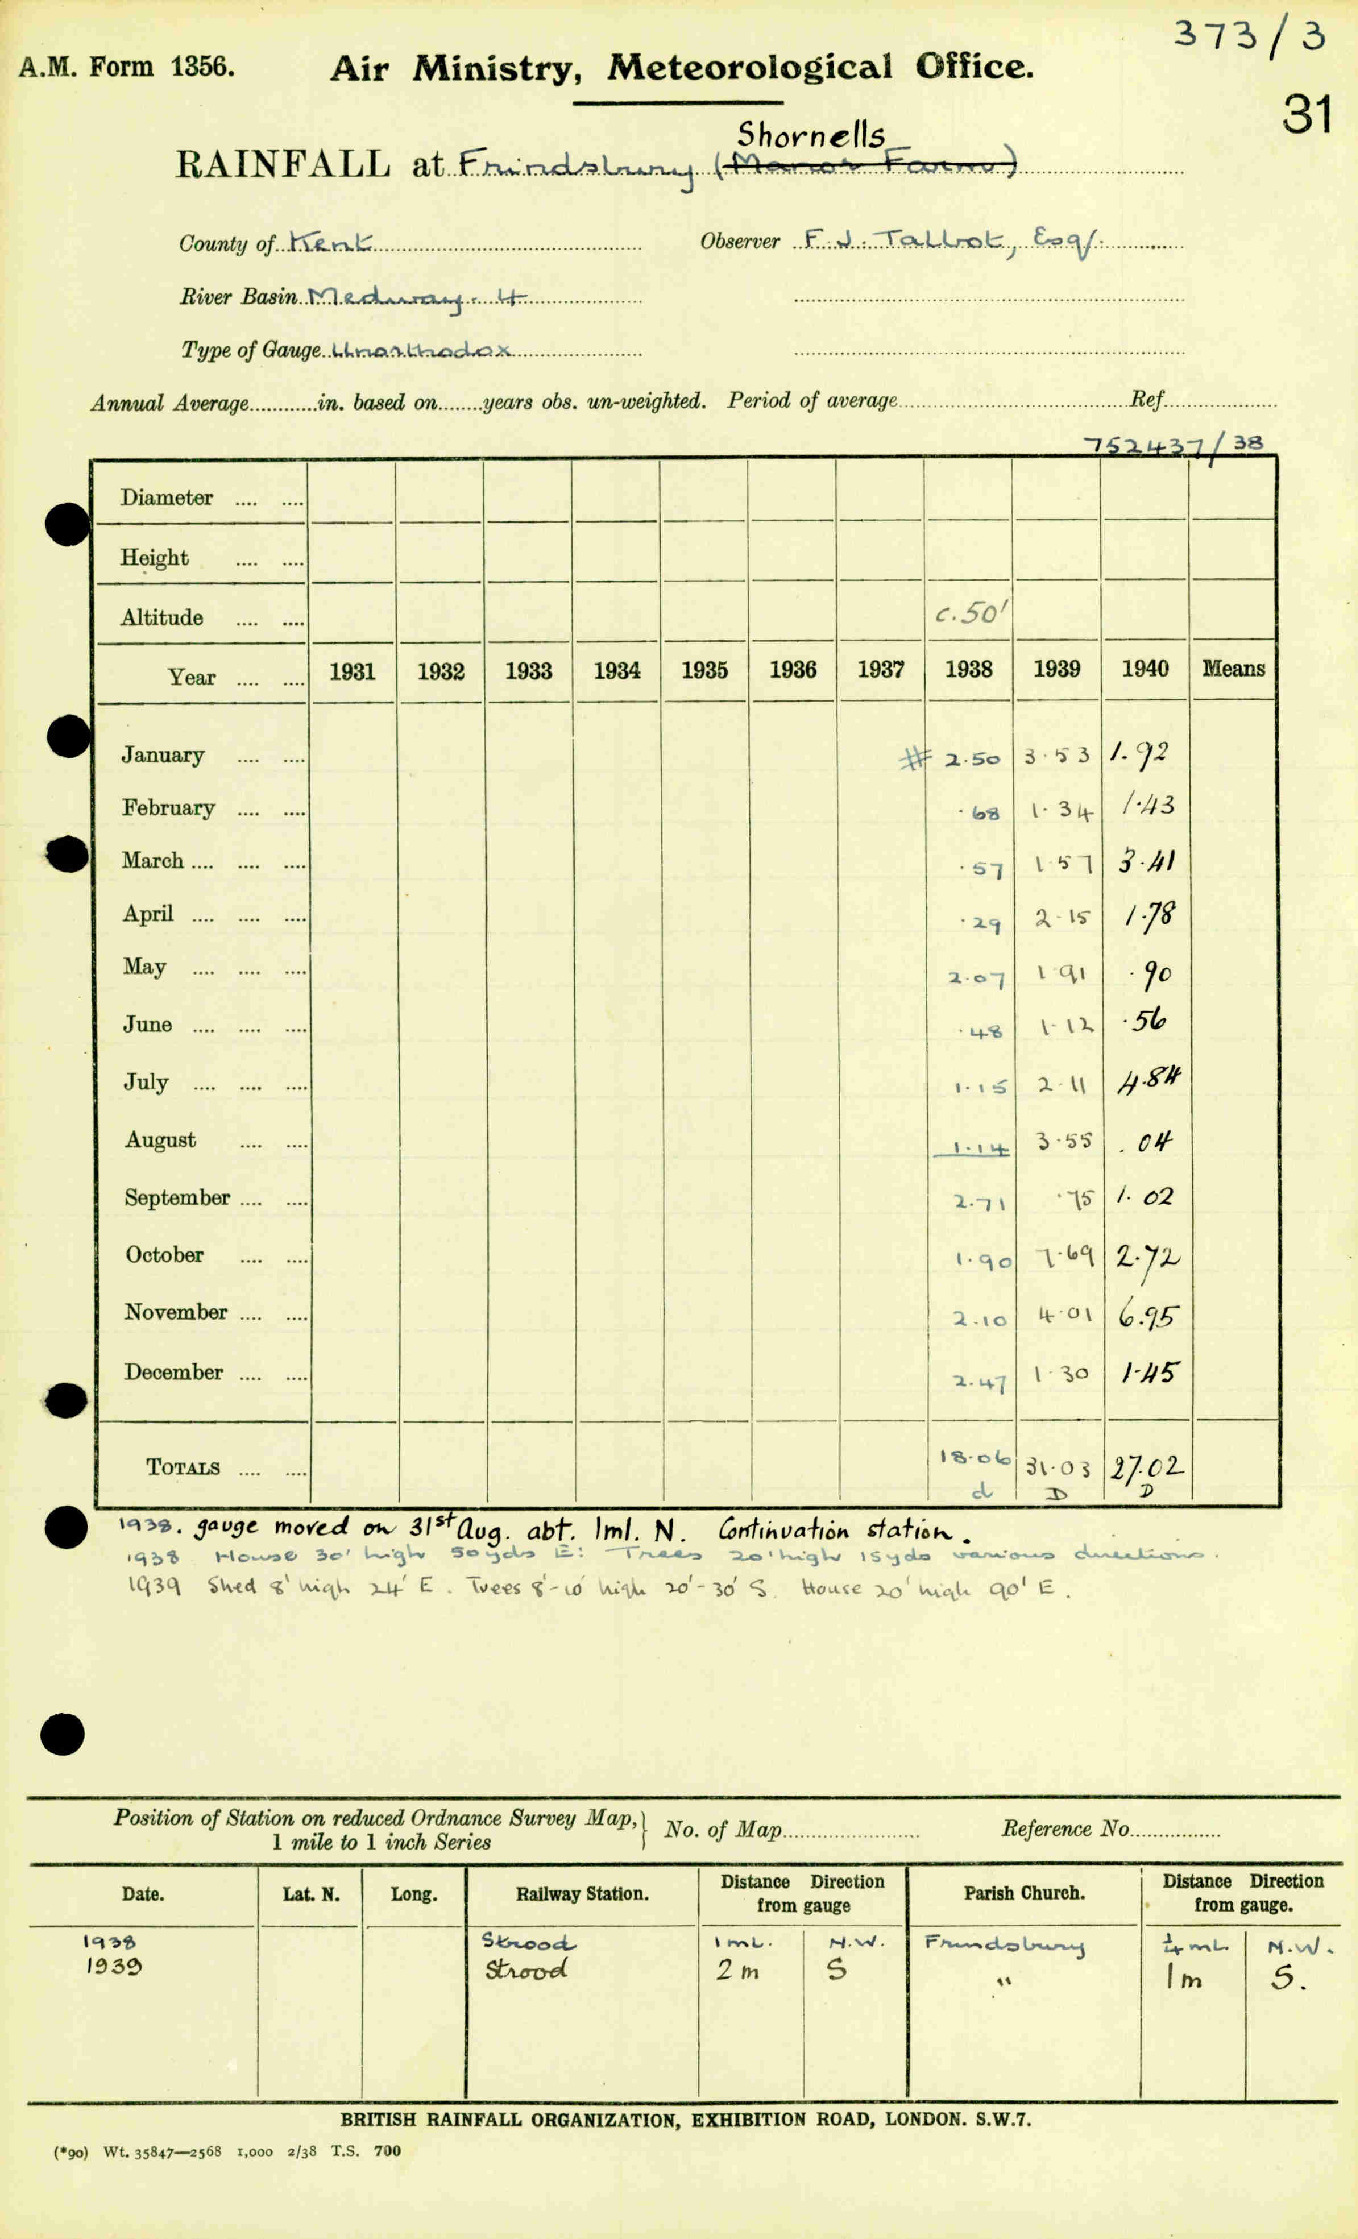 373/3
A.M. Form 1356.
Air Ministry, Meteorological Office.
31
Shornells
RAINFALL at Frindsbury (Manor Farm)
County of Kent
Observer F. J. Talbot, Esq/.
River Basin Medway - 4
Type of Gauge Unorthodox
Annual Average............in. based on........years obs. un-weighted. Period of average....................Ref....................
752437/38
Diameter .... ....
Height .... ....
Altitude .... .... c.50'
Year .... .... 1931 1932 1933 1934 1935 1936 1937 1938 1939 1940 Means
January .... .... # 2.50 3.53 1.92
February .... .... .68 1.34 1.43
March .... .... .... .57 1.57 3.41
April .... .... .... .29 2.15 1.78
May .... .... .... 2.07 1.91 .90
June .... .... .... .48 1.12 .56
July .... .... .... 1.15 2.11 4.84
August .... .... 1.14 3.55 .04
September .... .... 2.71 .75 1.02
October .... .... 1.90 7.69 2.72
November .... .... 2.10 4.01 6.95
December .... .... 2.47 1.30 1.45
TOTALS .... .... 18.06 31.03 27.02
d D D
1938. gauge moved on 31st Aug. abt. 1ml. N. Continuation station.
1938 House 30' high 50yds E: Trees 20' high 15yds various directions.
1939 Shed 8' high 24' E. Trees 8'-10' high 20'-30' S. House 20' high 90' E.
Position of Station on reduced Ordnance Survey Map,
1 mile to 1 inch Series
No. of Map........................
Reference No................
Date. Lat. N. Long. Railway Station. Distance from gauge Direction Parish Church. Distance from gauge. Direction
1938 Strood 1 mL. N.W. Frindsbury ¼ mL N.W.
1939 Strood 2 m S " 1 m S.
BRITISH RAINFALL ORGANIZATION, EXHIBITION ROAD, LONDON. S.W.7.
(*90) Wt. 35847—2568 1,000 2/38 T.S. 700